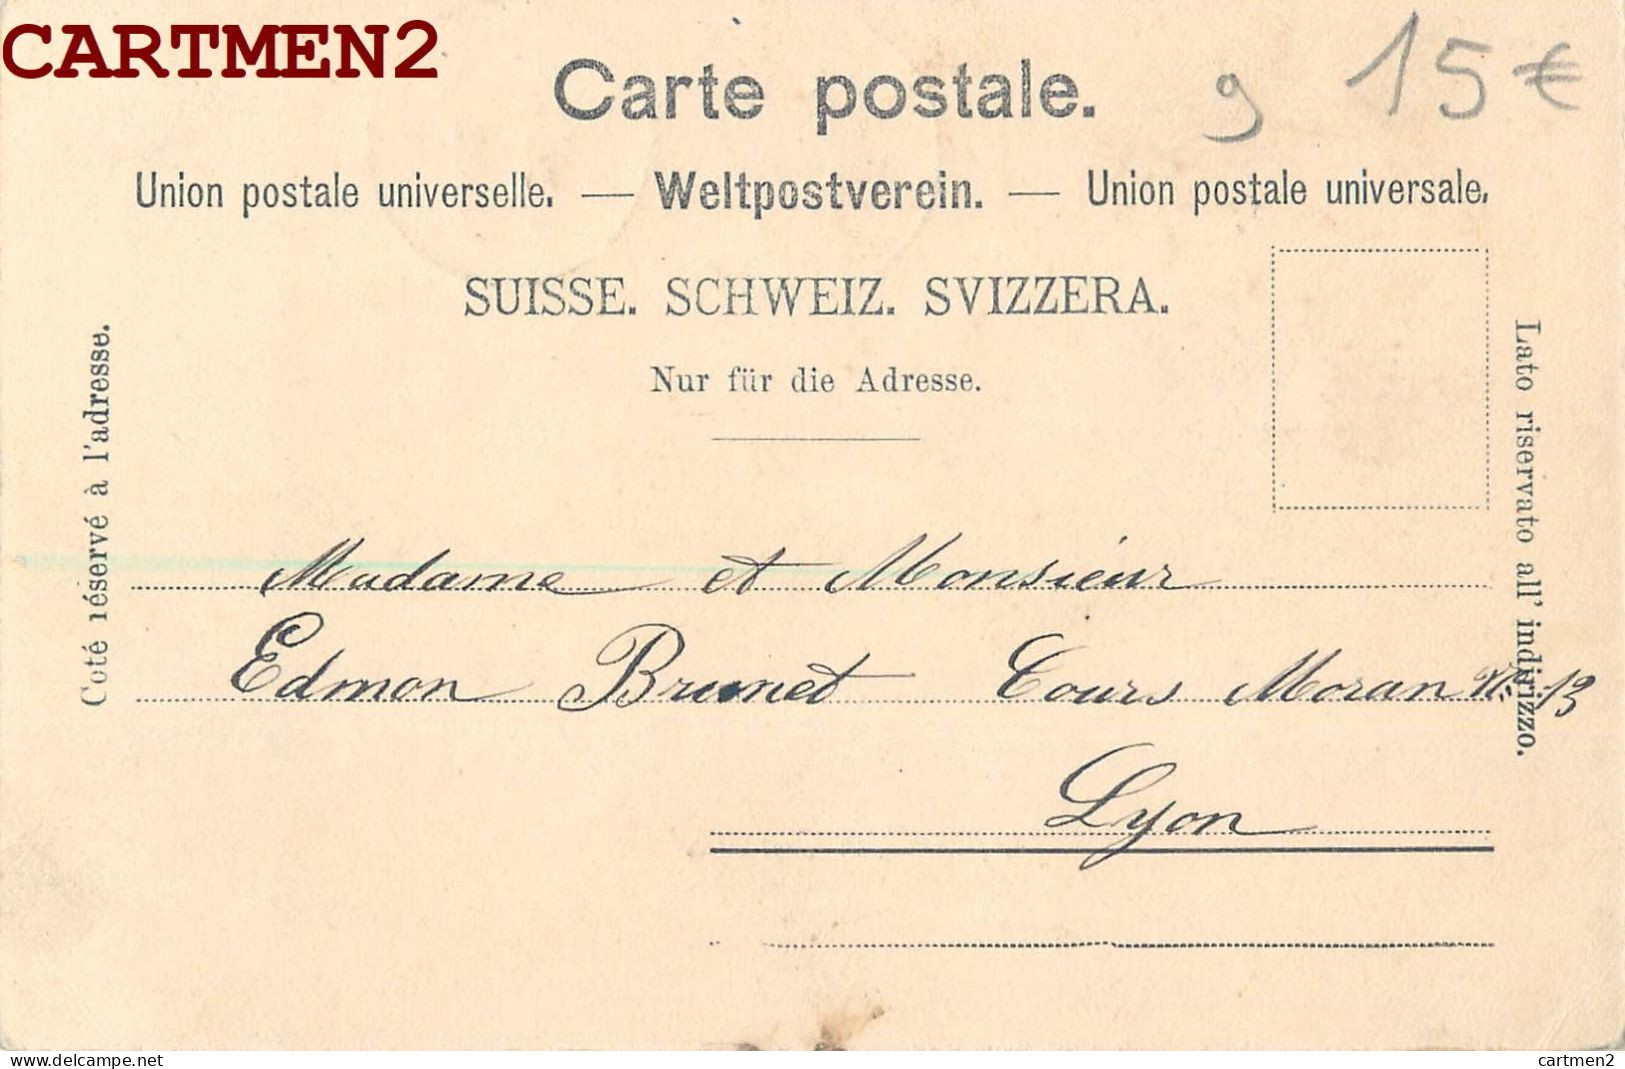 CARTMEN2
Carte postale.
9 15 €
Union postale universelle. — Weltpostverein. — Union postale universale.
SUISSE. SCHWEIZ. SVIZZERA.
Nur für die Adresse.
Coté réservé à l'adresse.
Lato riservato all' indirizzo.
Madame et Monsieur
Edmon Brunet Cours Moran No. 13
Lyon
www.delcampe.net
cartmen2